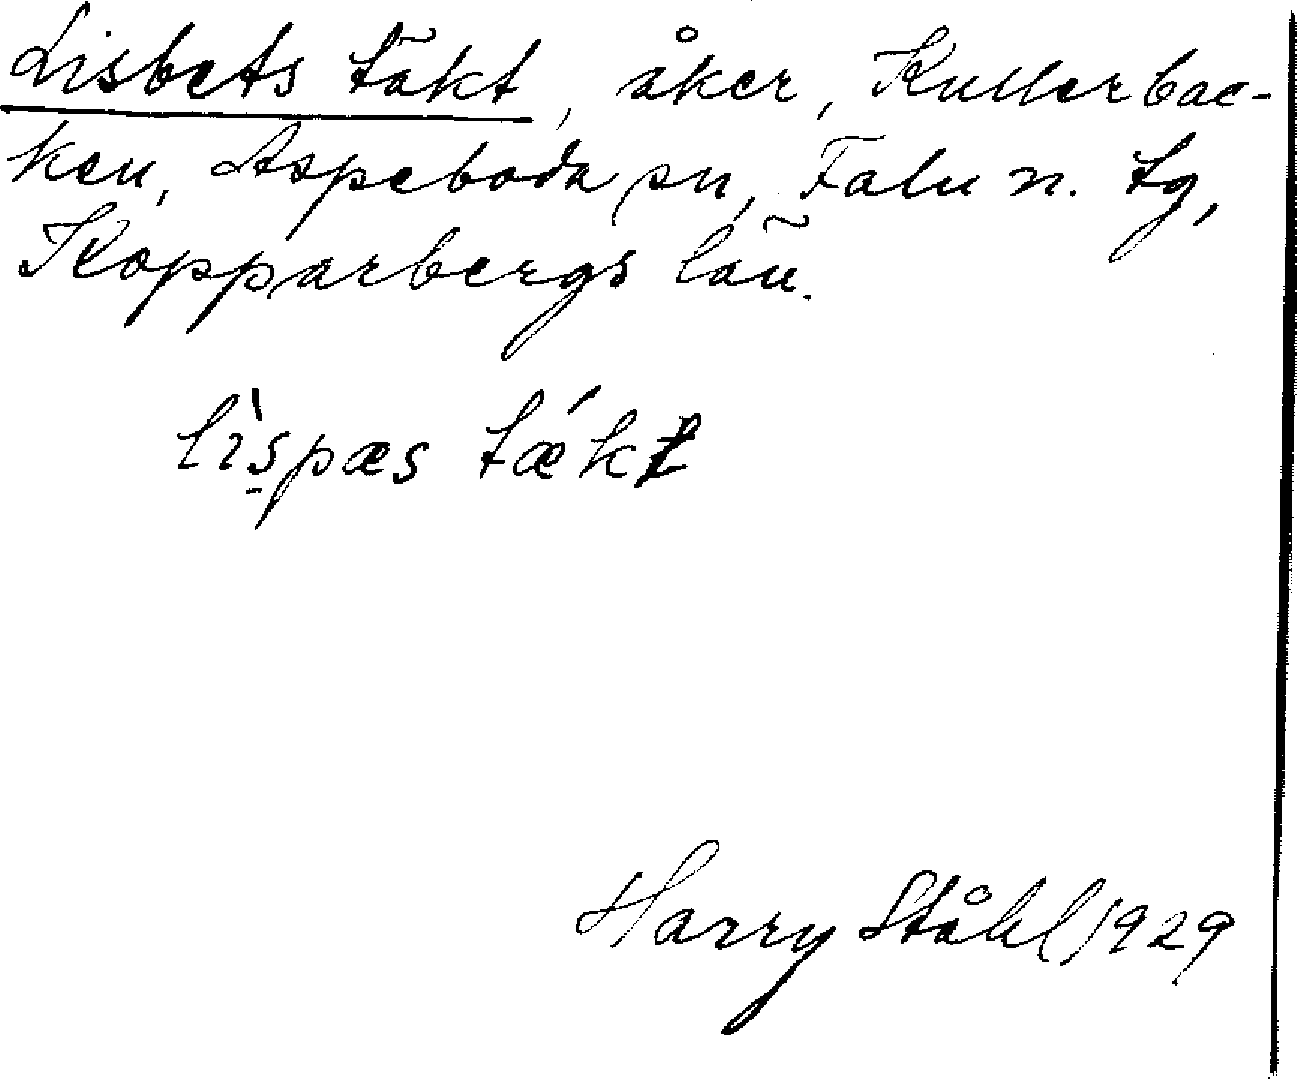 Lisbets täkt, åker, Kullerbac-
ken, Aspeboda sn, Falu n. tg,
Kopparbergs län.
lìspæs tǽkt
Harry Ståhl 1929